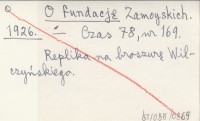 O fundację Zamoyskich.
1926. — Czas 78, nr 169.
Replika na broszurę Wil-
czyńskiego.